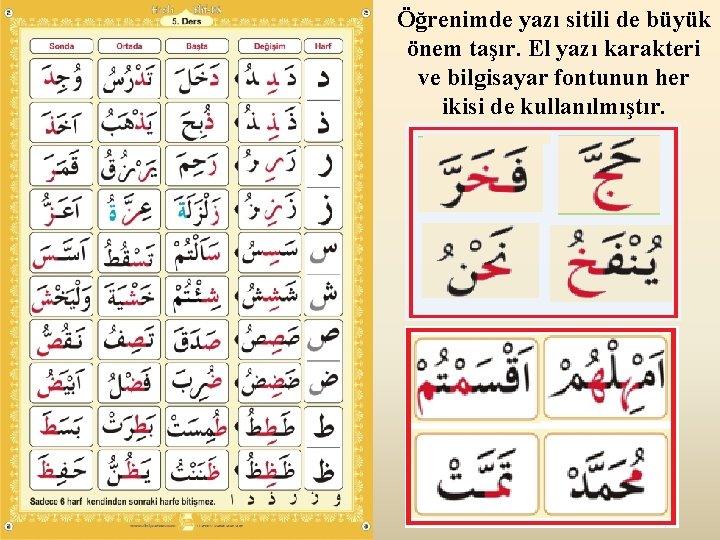 5. Ders
Sonda Ortada Başta Değişim Harf
وُجِدَ تَدْرُسُ دَخَلَ دَ دِ دُ د
اَخَذَ يَذْهَبُ ذُبِحَ ذَ ذِ ذُ ذ
قَمَرَ يَرْزُقُ رَحِمَ رَ رِ رُ ر
اَعَزُّ عِزَّةُ زَلْزَلَةَ زَ زِ زُ ز
اَسَّسَ تَسْقُطُ سَاَلْتُمْ سَسِسُ س
وَلْيَخْشَ خَشْيَةَ شِئْتُمْ شَشِشُ ش
نَقُصُّ تَصِفُ صَدَقَ صَصِصُ ص
اَبْيَضُ فَضْلُ ضُرِبَ ضَضِضُ ض
بَسَطَ بَطِرَتْ طُمِسَتْ طَطِطُ ط
حَفِظَ يَظُنُّ ظَنَنْتُ ظَظِظُ ظ
Sadece 6 harf kendinden sonraki harfe bitişmez. ا د ذ ر ز و
Öğrenimde yazı sitili de büyük
önem taşır. El yazı karakteri
ve bilgisayar fontunun her
ikisi de kullanılmıştır.
فَخَرَّ حَجَّ
نَحْنُ يُنْفَخُ
اَقْسَمْتُمْ اَمْهِلْهُمْ
تَمَّتْ مُحَمَّدَ